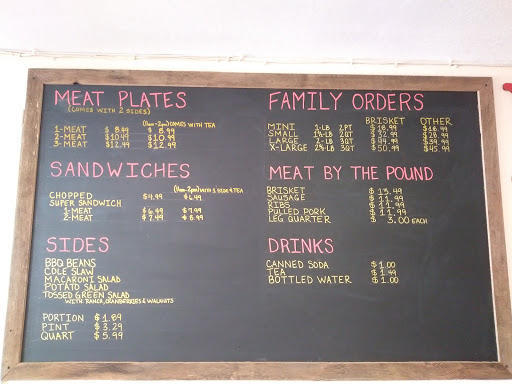 MEAT PLATES
(COMES WITH 2 SIDES)
(11am-2pm) COMES WITH TEA
1-MEAT $8.49 $8.99
2-MEAT $10.49 $10.99
3-MEAT $12.49 $12.99
SANDWICHES
(11am-2pm) WITH 1 SIDE & TEA
CHOPPED $4.99 $6.49
SUPER SANDWICH
1-MEAT $6.49 $7.99
2-MEAT $7.49 $8.99
SIDES
BBQ BEANS
COLE SLAW
MACARONI SALAD
POTATO SALAD
TOSSED GREEN SALAD
WITH RANCH, CRANBERRIES & WALNUTS
PORTION $1.89
PINT $3.29
QUART $5.99
FAMILY ORDERS
BRISKET OTHER
MINI 1-LB 2PT $18.99 $16.99
SMALL 2PT $32.99 $28.99
LARGE 3QT $44.99 $39.99
X-LARGE 3QT $50.99 $45.99
MEAT BY THE POUND
BRISKET $13.49
SAUSAGE $11.99
RIBS $11.99
PULLED PORK $11.99
LEG QUARTER $3.00 EACH
DRINKS
CANNED SODA $1.00
TEA $1.49
BOTTLED WATER $1.00